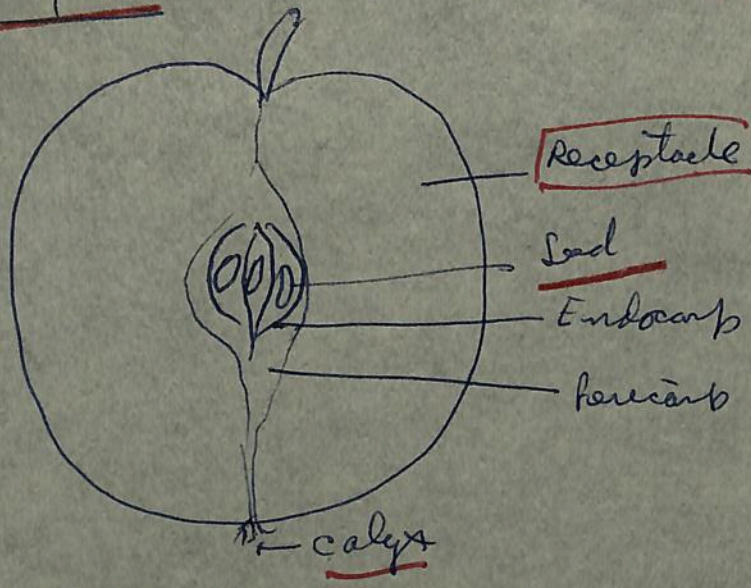 Receptacle
Seed
Endocarp
Pericarp
Calyx